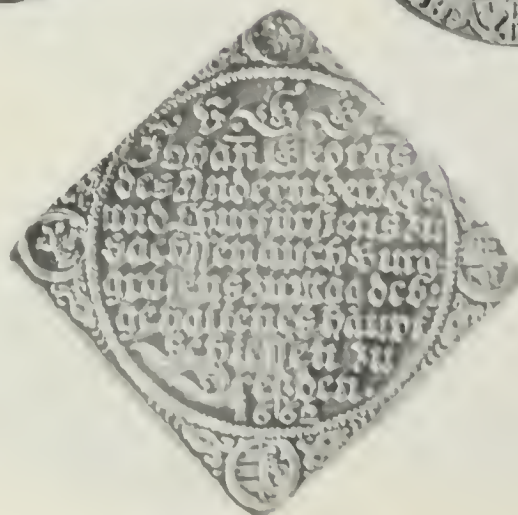 Johañ Georgs
des Andern Herzogs
und Churfürstens zu
Sachssen auch Burg
grafens zu
gehaltenes haupt
Schiessen zu
Dresden